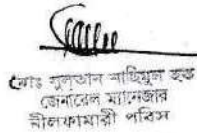 মোঃ সুলতান নাছিমুল হক
জেনারেল ম্যানেজার
নীলফামারী পবিস